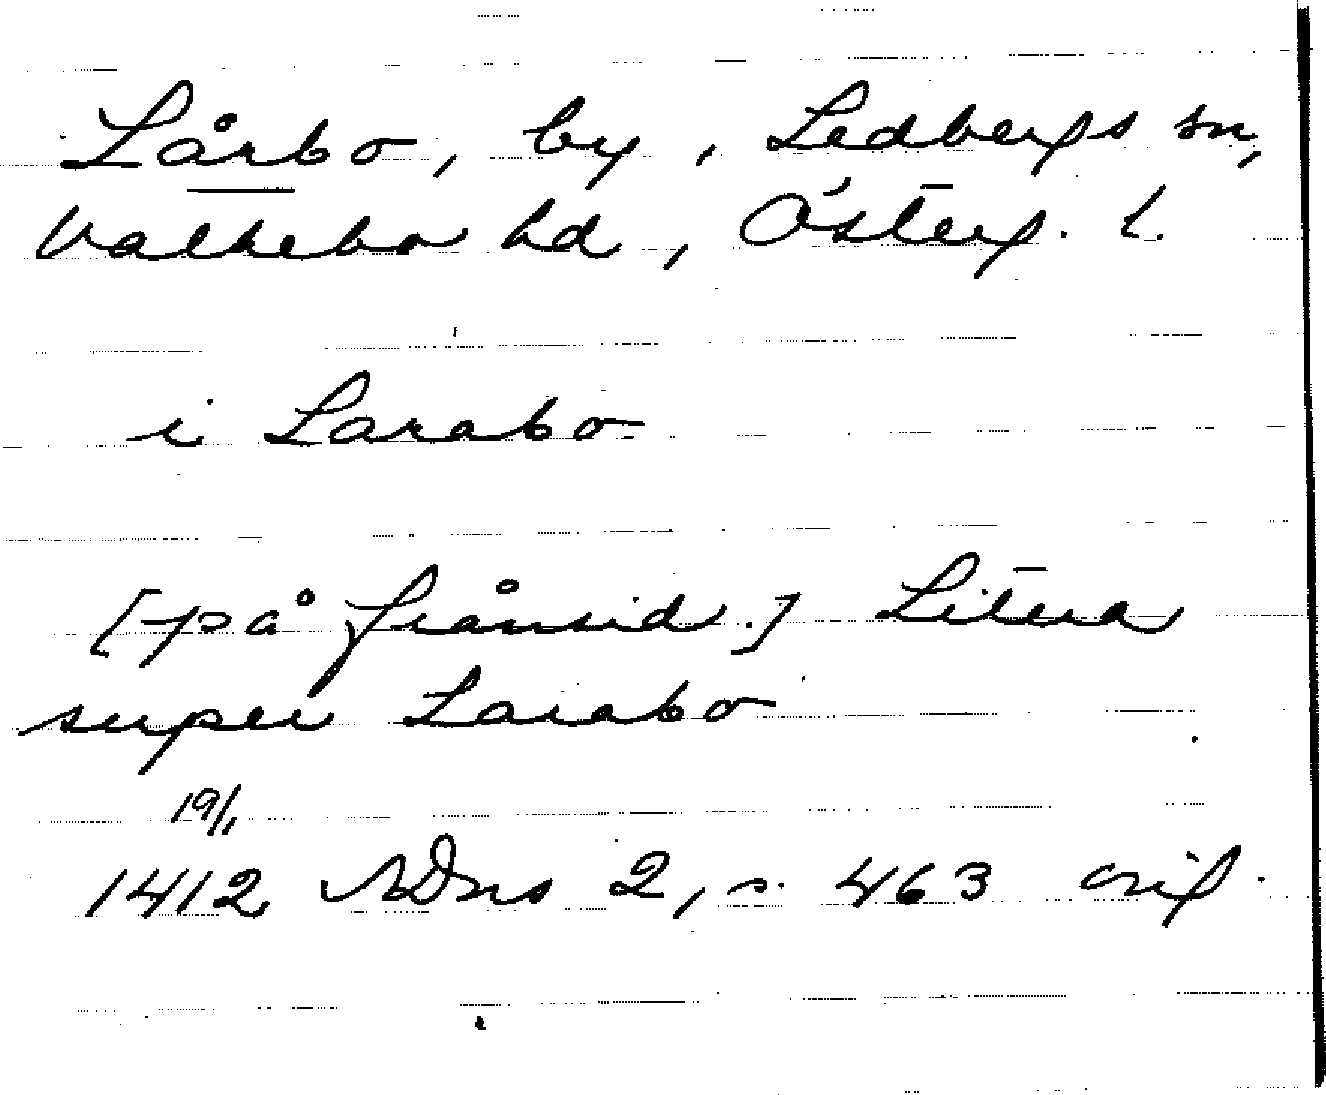 Lårbo, by, Ledbergs sn,
Valkebo hd, Österg. l.
i Larabo
[på frånsid.] Litera
super Larabo
19/1
1412 SDns 2, s. 463 orig.